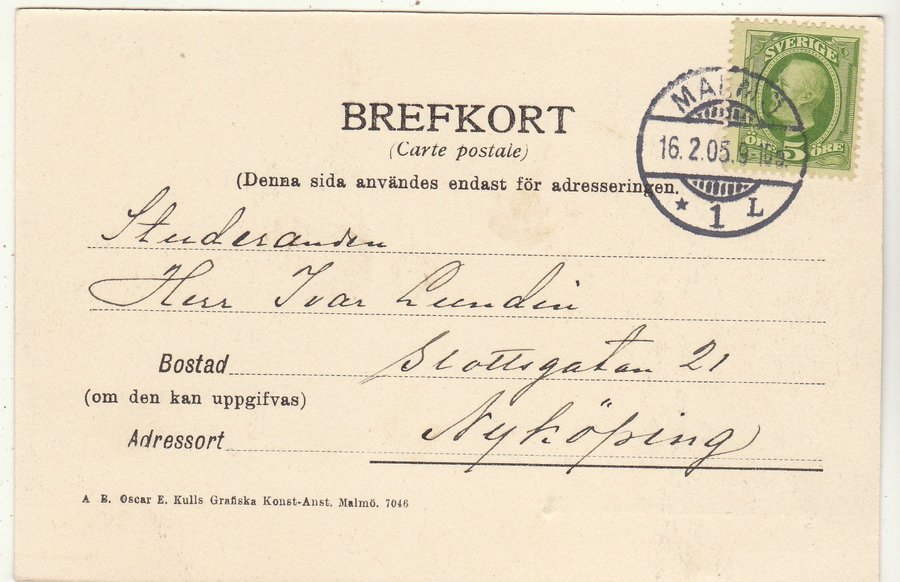 SVERIGE
ÖRE 5 ÖRE
MALMÖ
16.2.05.
★ 1 L
BREFKORT
(Carte postale)
(Denna sida användes endast för adresseringen.
Studeranden
Herr Ivar Lundin
Bostad Slottsgatan 21
(om den kan uppgifvas)
Adressort Nyköping
A B. Oscar E. Kulls Grafiska Konst-Anst. Malmö. 7046